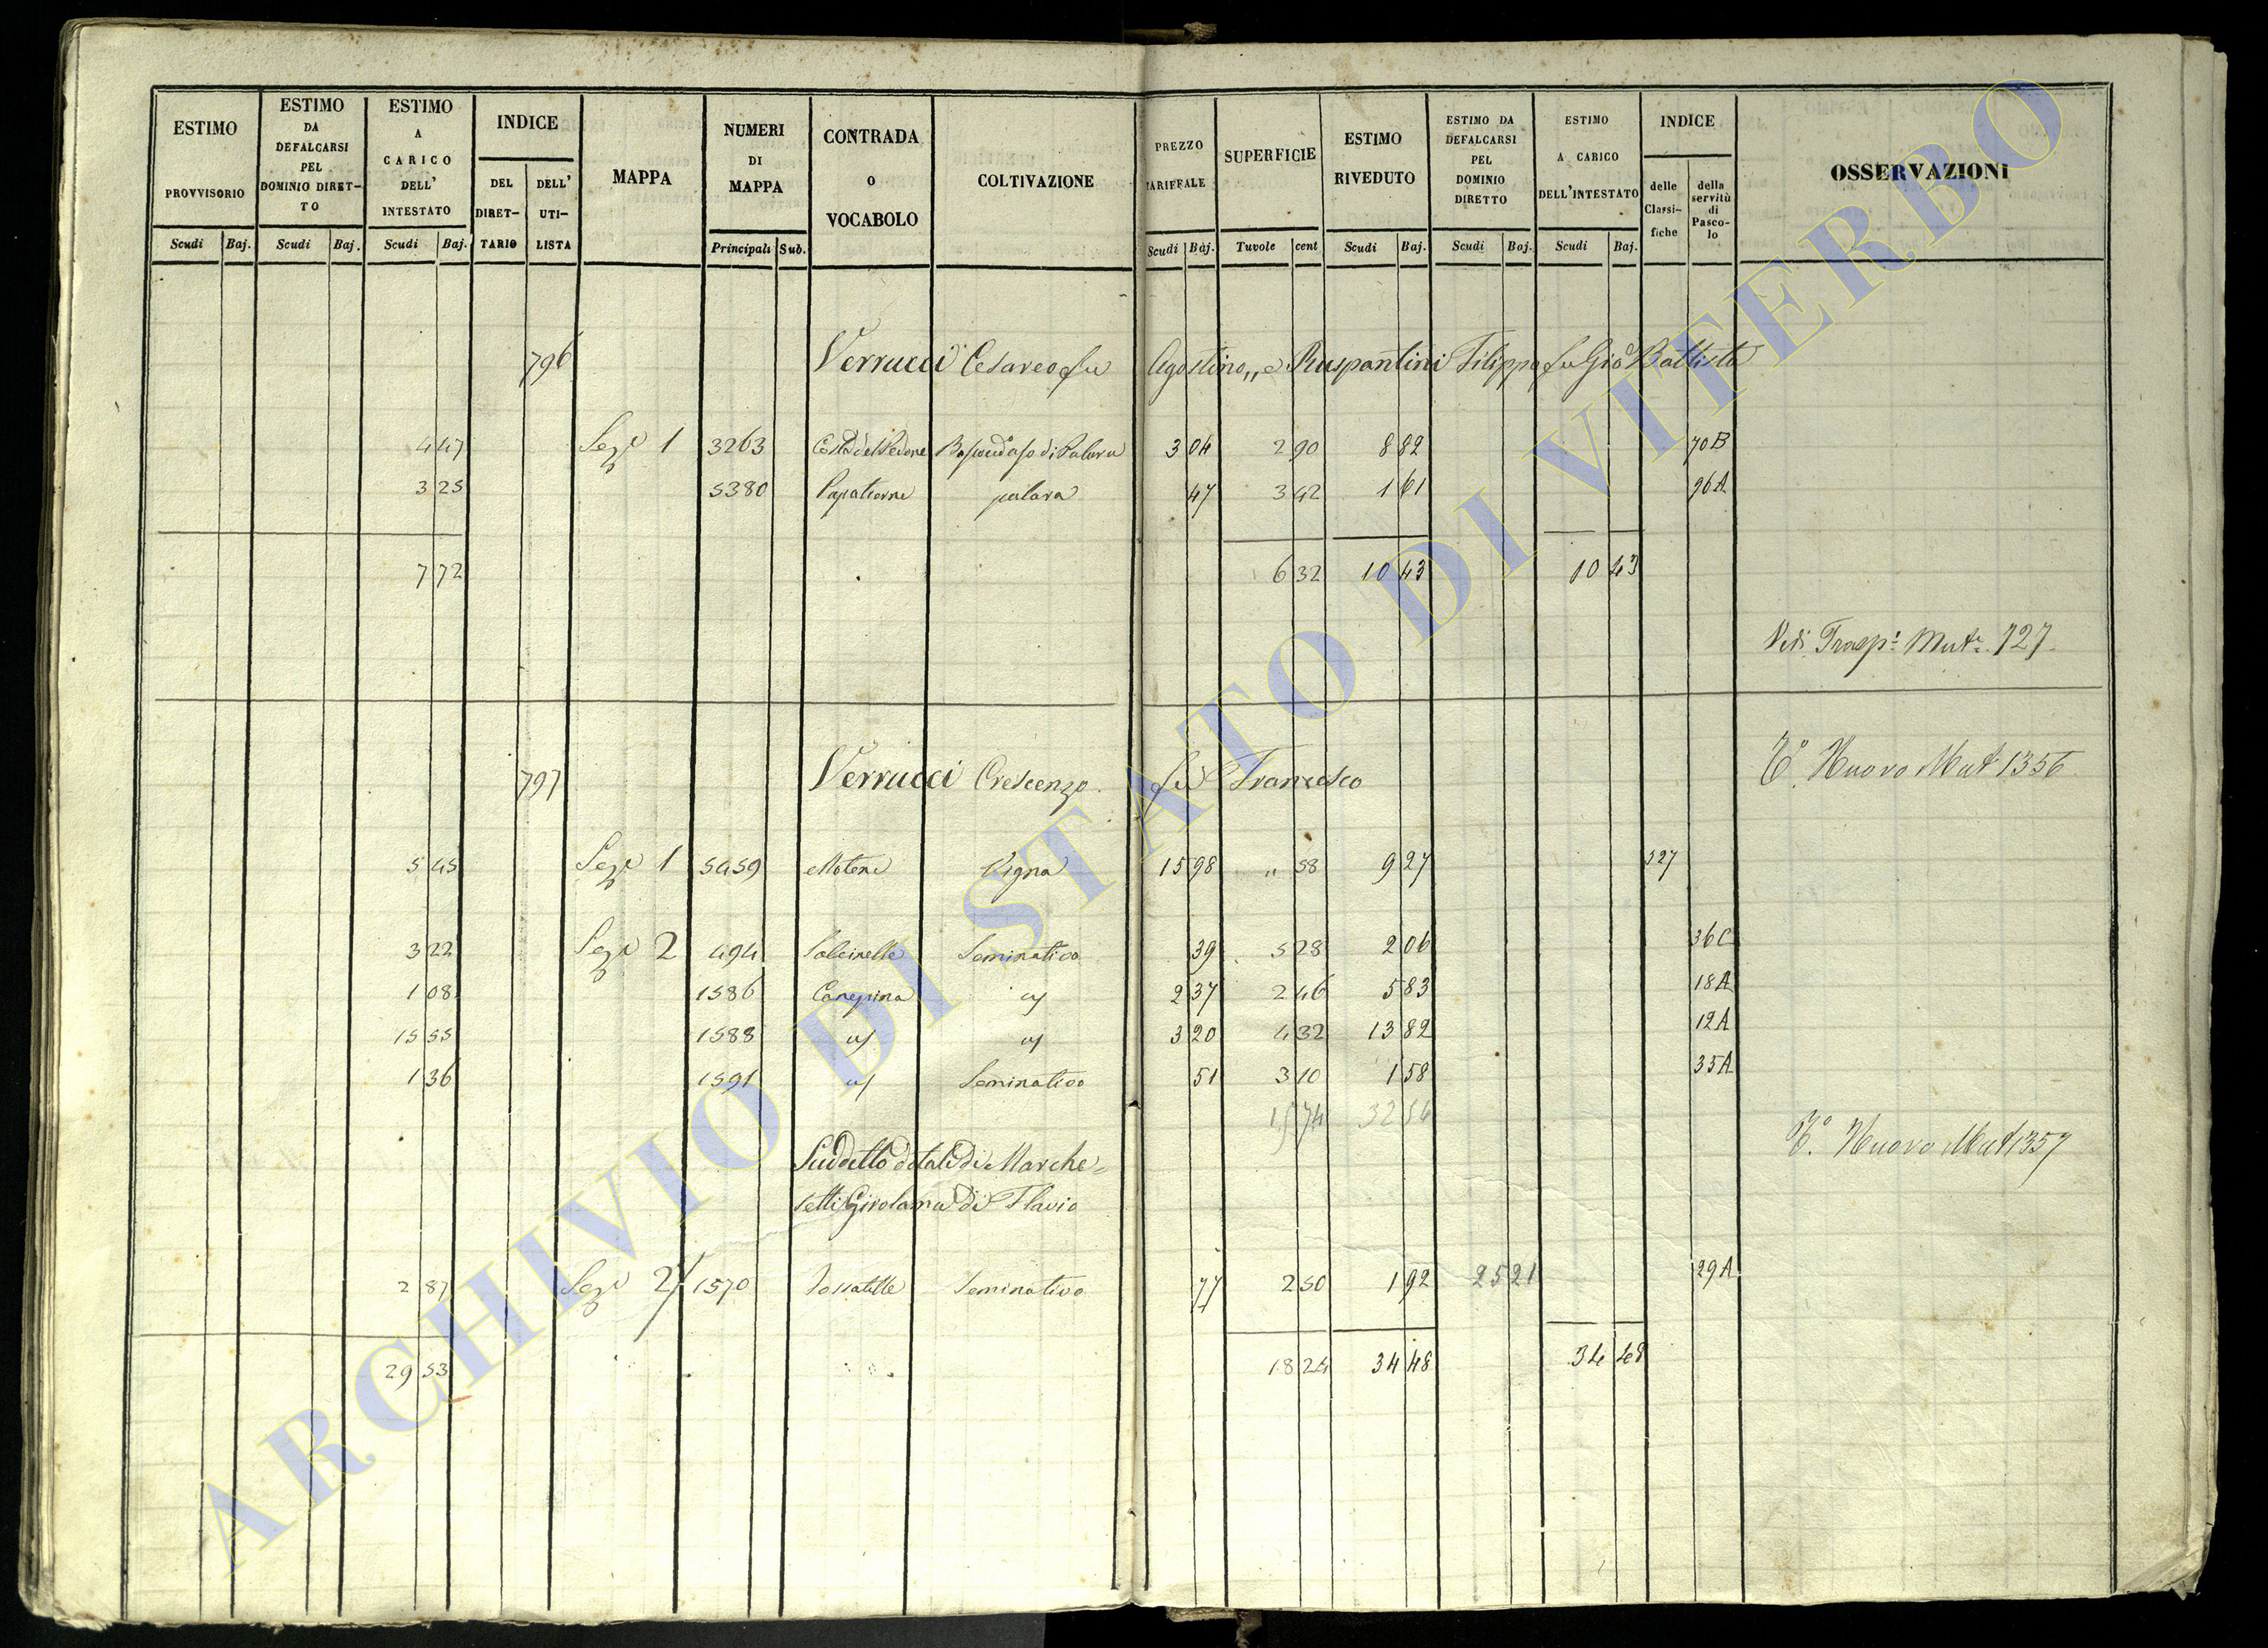 ESTIMO PROVVISORIO Scudi Baj.
ESTIMO DA DEFALCARSI PEL DOMINIO DIRET-TO Scudi Baj.
ESTIMO A CARICO DELL' INTESTATO Scudi Baj.
INDICE DEL DIRET-TARIO DELL' UTI-LISTA
MAPPA
NUMERI DI MAPPA Principali Sub.
CONTRADA O VOCABOLO
COLTIVAZIONE
PREZZO TARIFFALE Scudi Baj.
SUPERFICIE Tavole cent
ESTIMO RIVEDUTO Scudi Baj.
ESTIMO DA DEFALCARSI PEL DOMINIO DIRETTO Scudi Baj.
ESTIMO A CARICO DELL'INTESTATO Scudi Baj.
INDICE delle Classi-fiche della servitù di Pasco-lo
OSSERVAZIONI
796 Verrucci Cesareo fu Agostino,, e Ruspantini Filippo fu Gio Battista
4 47 Sez 1 3263 Costa del Pedone 3 04 2 90 8 82 70B
3 25 5380 palara 47 3 42 1 61 96A
7 72 6 32 10 43 10 43
Vedi Trasp: Mut: 727
797 Verrucci Crescenzo fu Francesco T.° Nuovo Mut 1356
5 45 Sez 1 5459 Vigna 15 98 " 58 9 27 527
3 22 Sez 2 494 Salcinelle Seminativo 39 5 28 2 06 36C
1 08 1586 Canepina 2 37 2 46 5 83 18A
15 55 1588 3 20 4 32 13 82 12A
1 36 1591 Seminativo 51 3 10 1 58 35A
15 74 32 56
Suddetto dotale di Marche= T.° Nuovo Mut 1357
setti Girolama di Flavio
2 87 Sez 2 1570 Fossatelle Seminativo 77 2 50 1 92 25 21 29A
29 53 18 24 34 48 34 48
ARCHIVIO DI STATO DI VITERBO